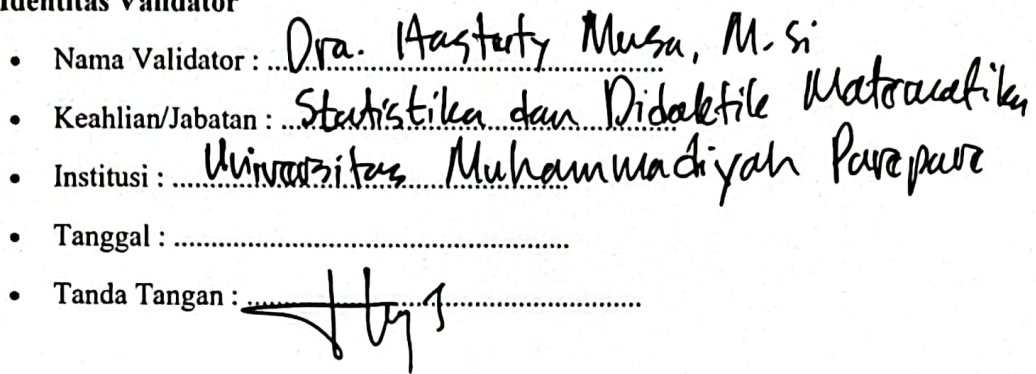 Identitas Validator
• Nama Validator : Dra. Hastuty Musa, M.Si
• Keahlian/Jabatan : Statistika dan Didaktik Matematika
• Institusi : Universitas Muhammadiyah Parepare
• Tanggal : ..........
• Tanda Tangan : ..........